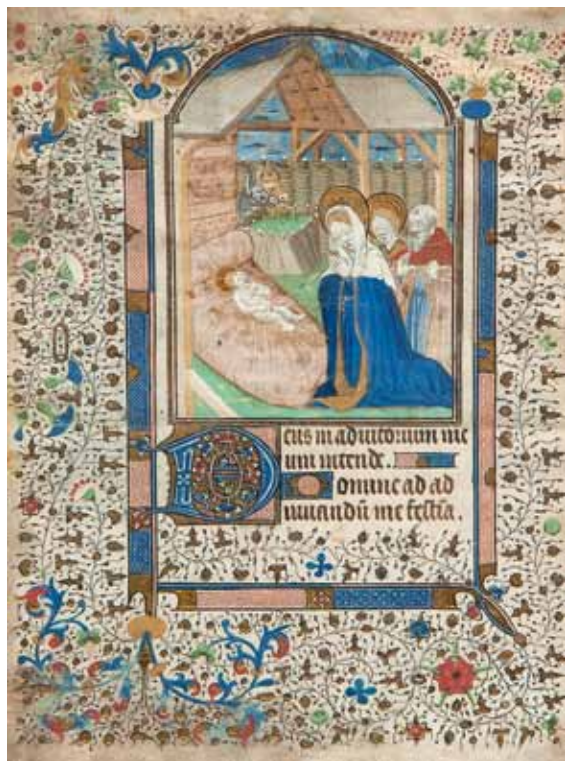 Deus in adiutorium me
um intende.
Domine ad ad
iuuandū me festia.